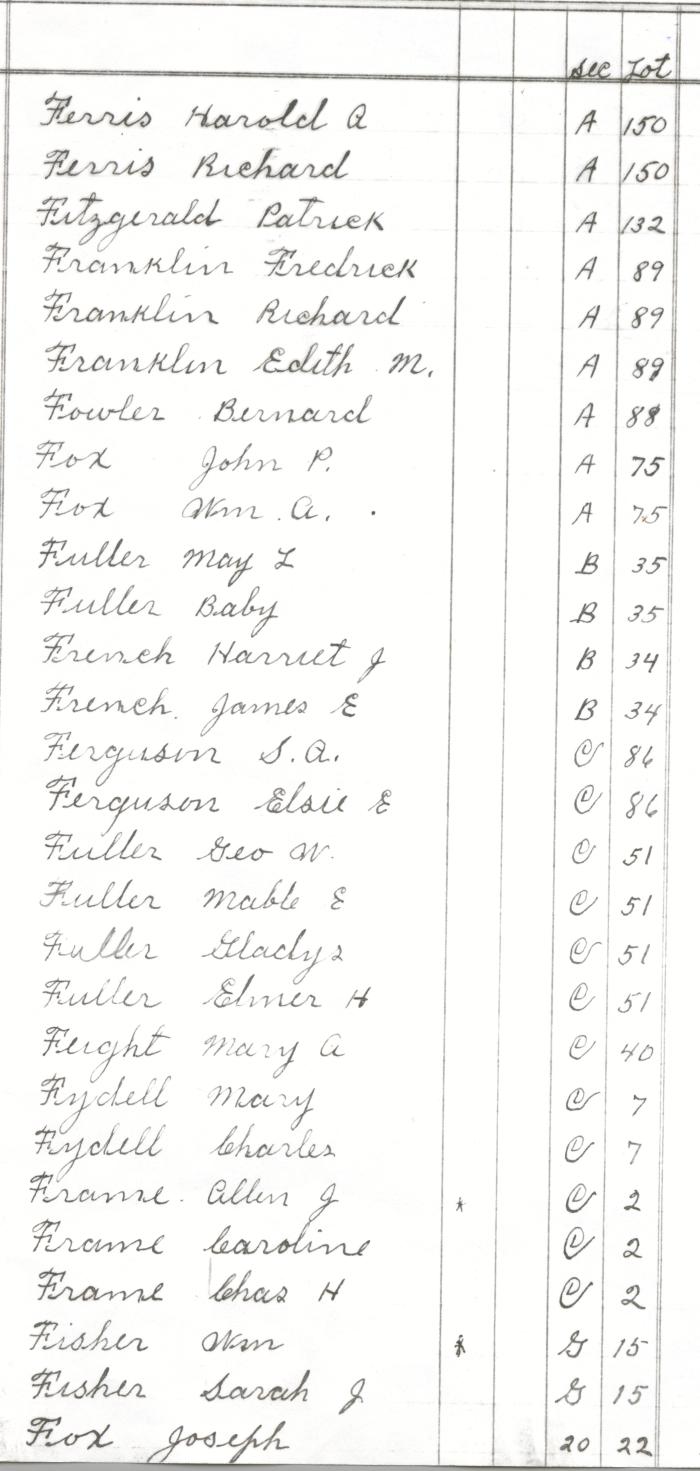 Sec Lot
Ferris Harold A A 150
Ferris Richard A 150
Fitzgerald Patrick A 132
Franklin Fredrick A 89
Franklin Richard A 89
Franklin Edith M. A 89
Fowler Bernard A 88
Fox John P. A 75
Fox Wm. A. A 75
Fuller May L B 35
Fuller Baby B 35
French Harriet J B 34
French James E B 34
Ferguson S.A. C 86
Ferguson Elsie E C 86
Fuller Geo W. C 51
Fuller Mable E C 51
Fuller Gladys C 51
Fuller Elmer H C 51
Feight Mary A C 40
Fydell Mary C 7
Fydell Charles C 7
Frame Allen J * C 2
Frame Caroline C 2
Frame Chas H C 2
Fisher Wm * G 15
Fisher Sarah J G 15
Fox Joseph 20 22